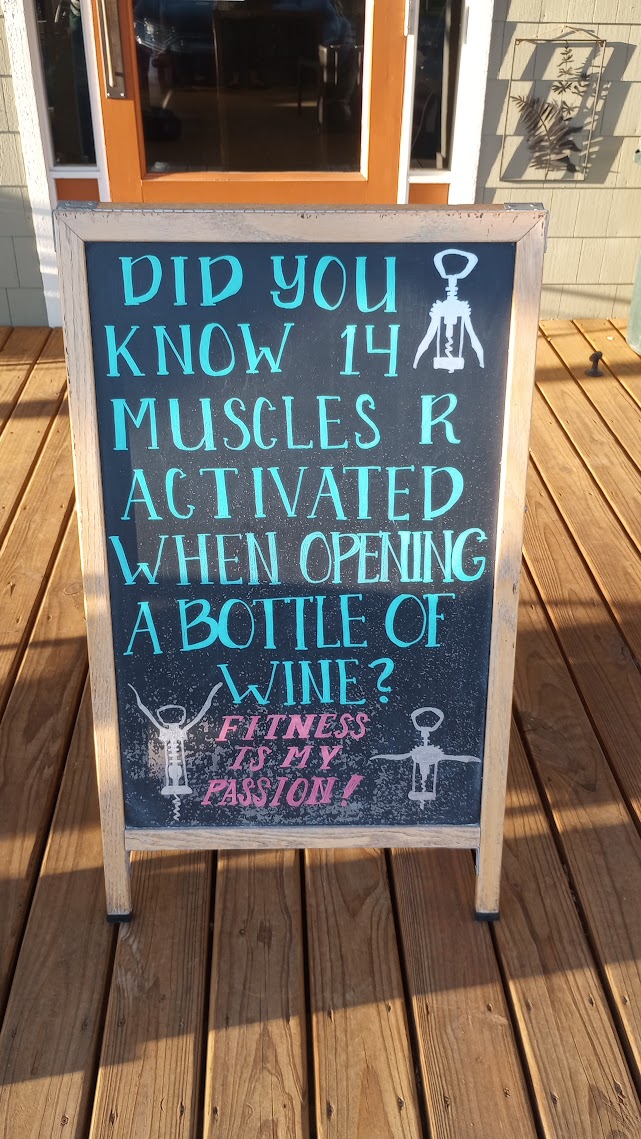 DID YOU
KNOW 14
MUSCLES R
ACTIVATED
WHEN OPENING
A BOTTLE OF
WINE?
FITNESS
IS MY
PASSION!